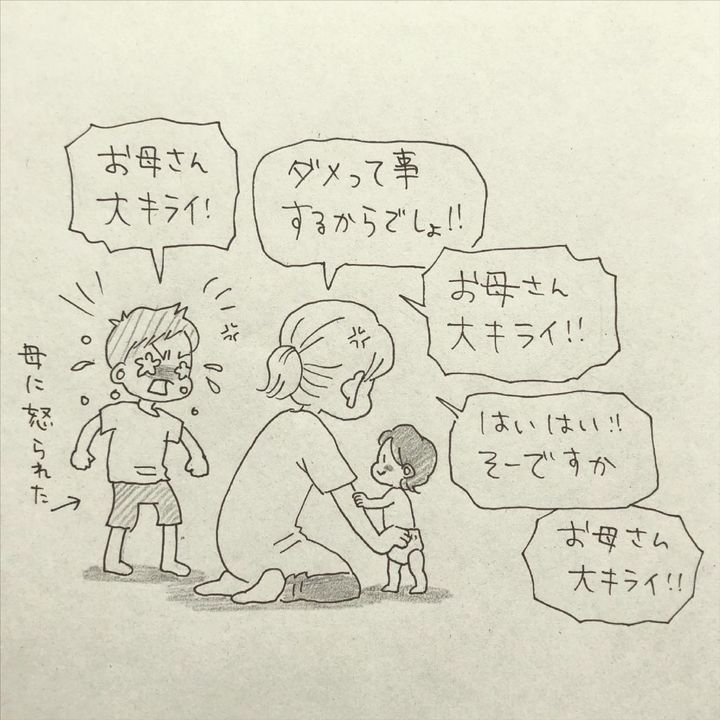 お母さん
大キライ!
ダメって事
するからでしょ!!
お母さん
大キライ!!
はいはい!!
そーですか
お母さん
大キライ!!
母に怒られた